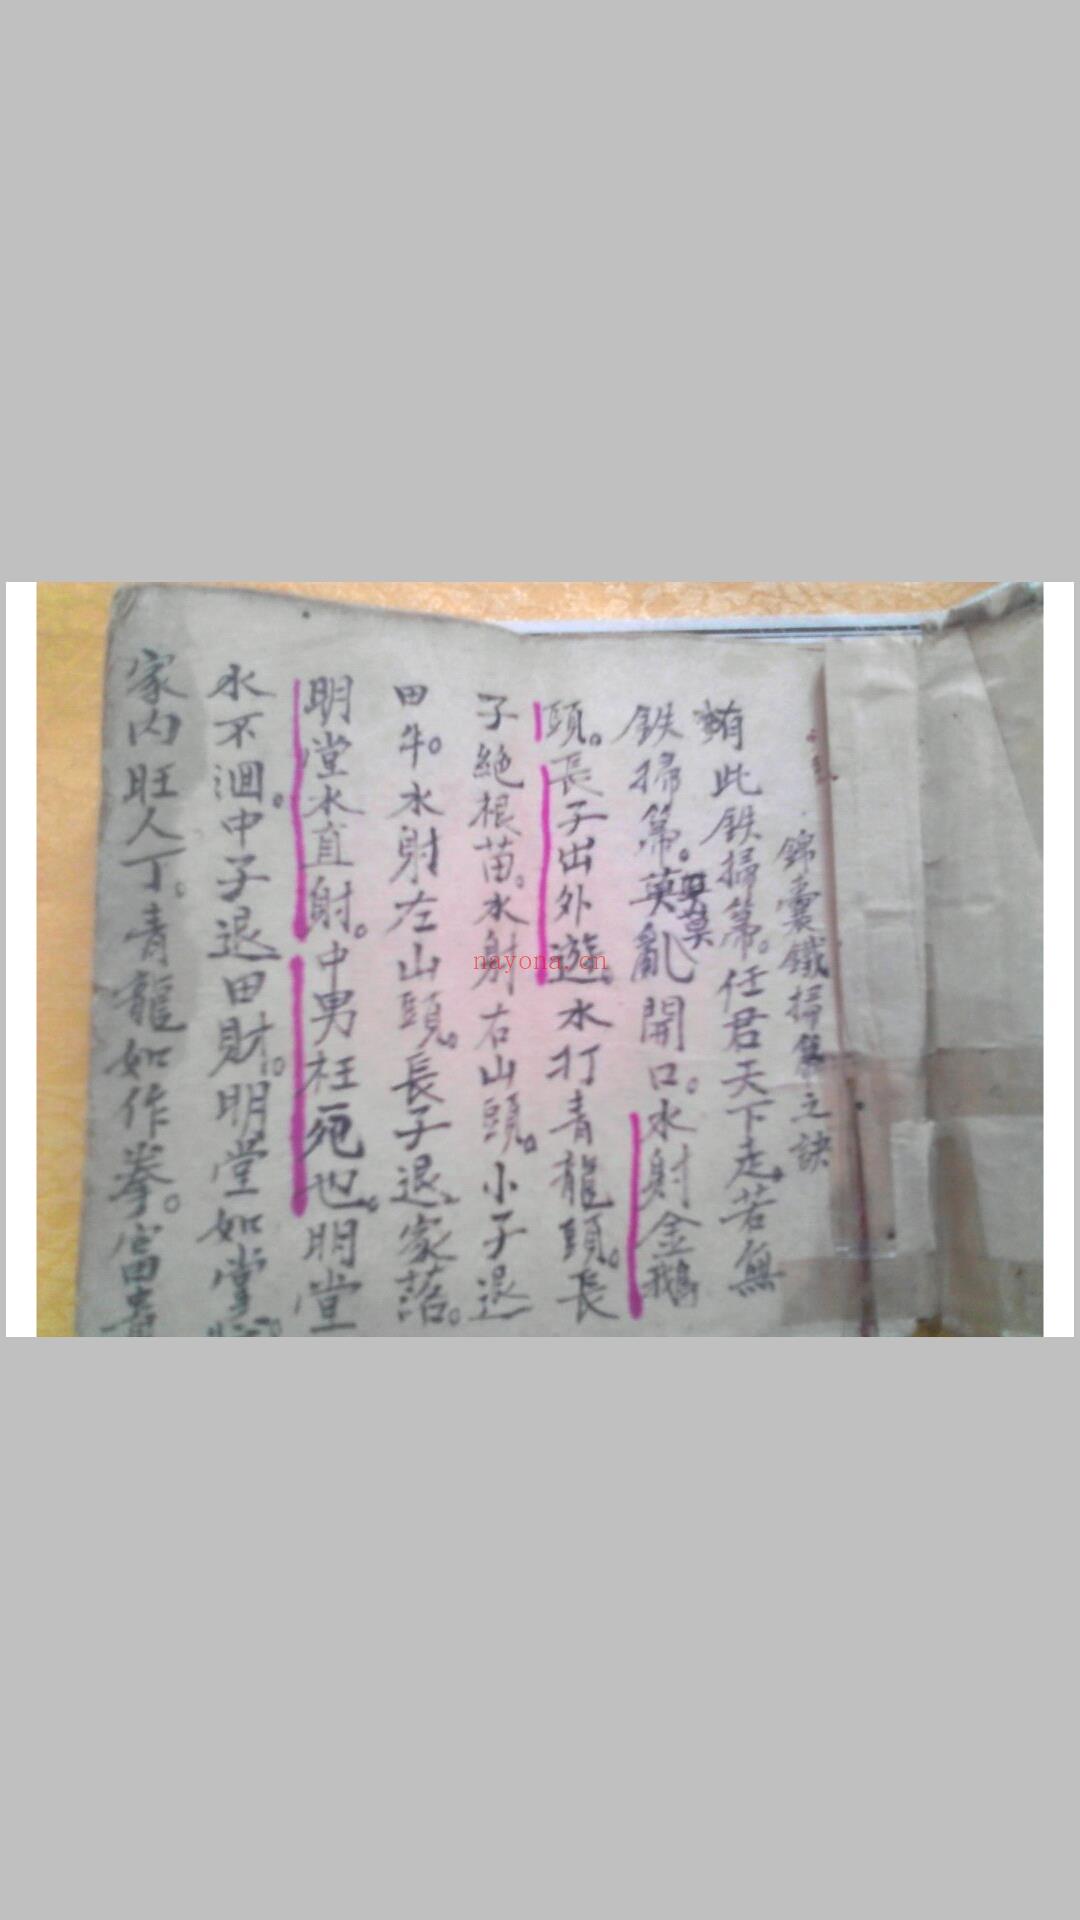 錦囊鐵掃箒之訣
有此鉄掃箒。任君天下走。若無
鉄掃箒。英亂開口。水射金鵝
莫
頭。長子出外遊。水打青龍頭。長
子絕根苗。水射右山頭。小子退
田牛。水射左山頭。長子退家落。
明堂水直射。中男枉死也。明堂
水不洄。中子退田財。明堂如掌
家内旺人丁。青龍如作拳。富貴
nayona.cn